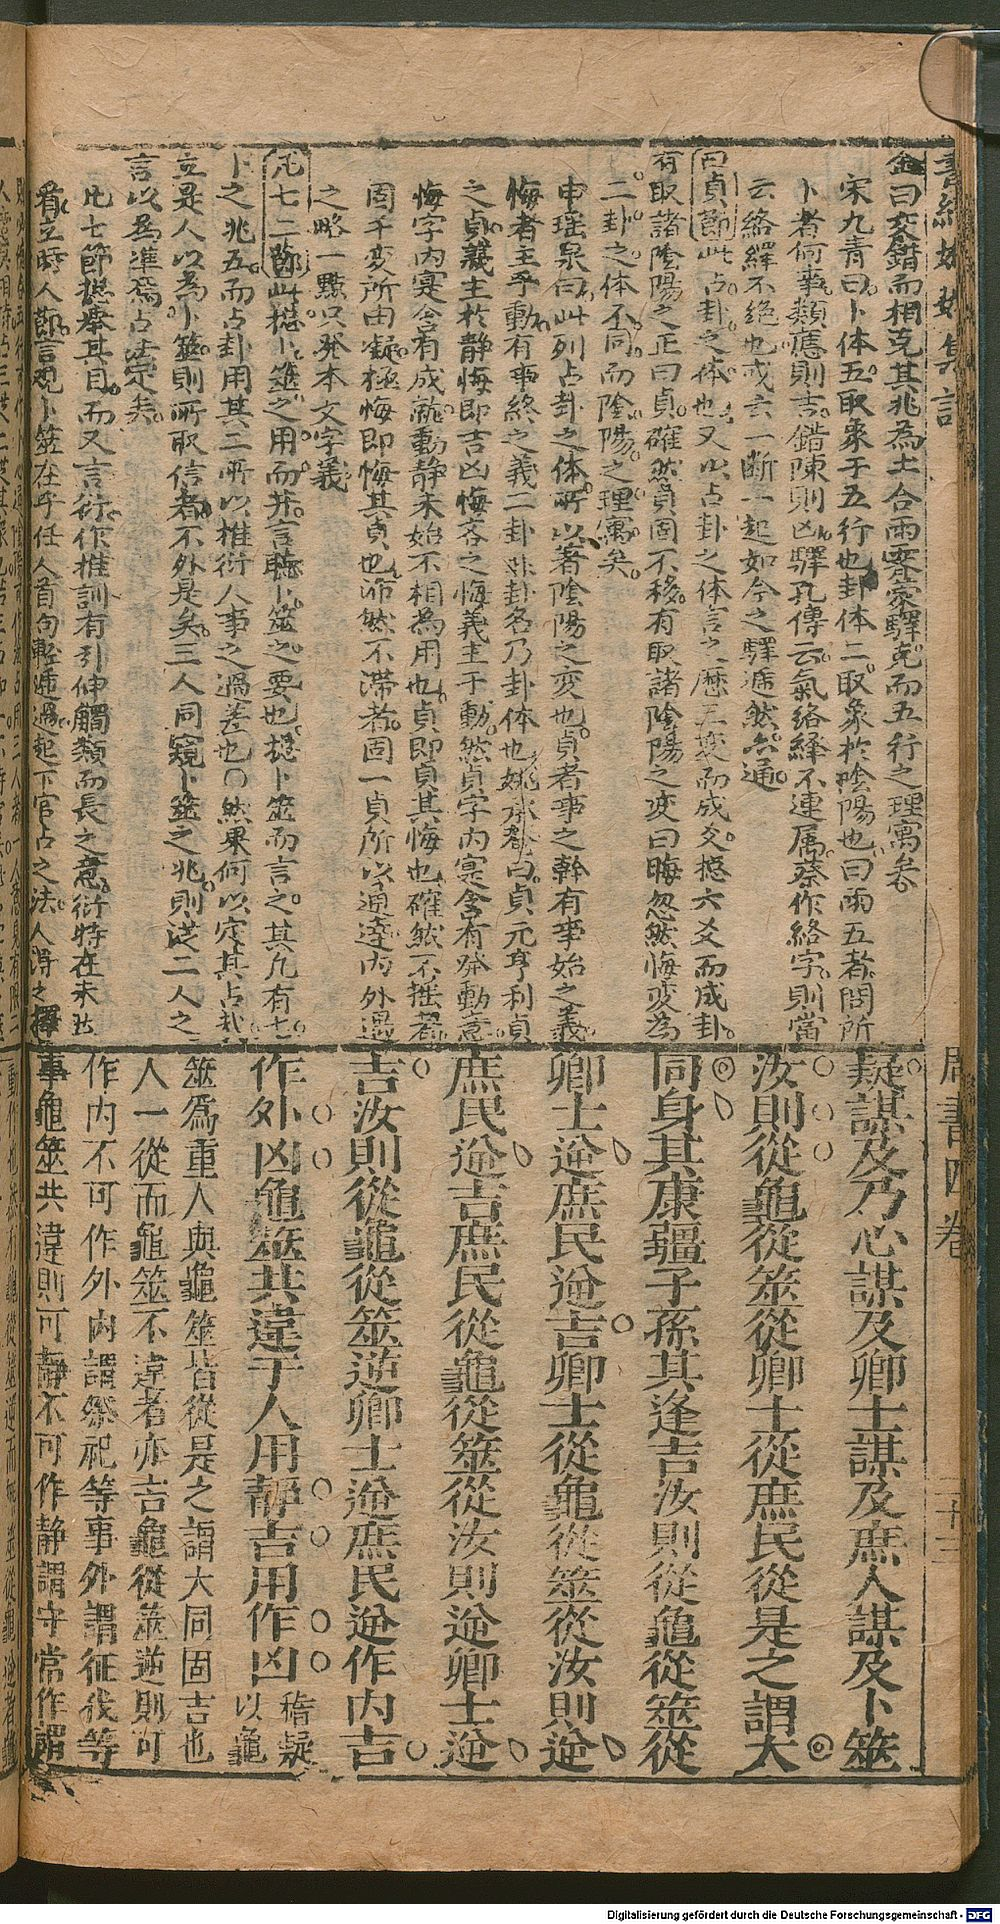 金曰交錯而相克其兆為土合雨霽蒙驛克而五行之理寓矣
宋九青曰卜体五取象于五行也卦体二取象於陰陽也曰雨五者問所
卜者何事類應則吉錯陳則凶驛孔傳云氣絡繹不連属蔡作絡字則當
云絡繹不絶也或云一断一起如今之驛遞然亦通
曰貞節此占卦之体也又以占卦之体言之歷三変而成爻揔六爻而成卦
有取諸陰陽之正曰貞確然貞固不移有取諸陰陽之变曰晦忽然悔変為
二卦之体不同而陰陽之理寓矣
申瑶泉曰此列占卦之体所以著陰陽之变也貞者事之幹有事始之義
悔者主乎動有事終之義二卦非卦名乃卦体也姚承菴曰貞元亨利貞
之貞義主於静悔即吉凶悔吝之悔義主于動然貞字内寔含有発動意
悔字内寔含有成意動静未始不相為用也貞即貞其悔也確然不揺者
固千変所由凝極悔即悔其貞也沛然不滞者固一貞所以通達内外
之略一點只発本文字義
凡七二節此揔卜筮之用而并言聴卜筮之要也揔卜筮而言之其凡有七
卜之兆五而占卦用其二所以推衍人事之過差也〇然果何以定其占哉
立是人以為卜筮則所取信者不外是矣三人同窺卜筮之兆則従二人之
言以為準焉占法定矣
凡七節揔舉其目而又言衍作推訓有引伸觸類而長之意衍特在未
看立時人節言見卜筮在乎任人首句輕逓過起下官占之法人得之擇
周書四卷
疑謀及乃心謀及卿士謀及庶人謀及卜筮
汝則從龜從筮從卿士從庶民從是之謂大
同身其康疆子孫其逢吉汝則從龜從筮從
卿士逆庶民逆吉卿士從龜從筮從汝則逆
庶民逆吉庶民從龜從筮從汝則逆卿士逆
吉汝則從龜從筮逆卿士逆庶民逆作内吉
作外凶龜筮共違于人用靜吉用作凶稽疑以龜
筮爲重人與龜筮皆從是之謂大同固吉也
人一從而龜筮不違者亦吉龜從筮逆則可
作内不可作外内謂祭祀等事外謂征伐等
事龜筮共違則可靜不可作静謂守常作謂
Digitalisierung gefördert durch die Deutsche Forschungsgemeinschaft - DFG